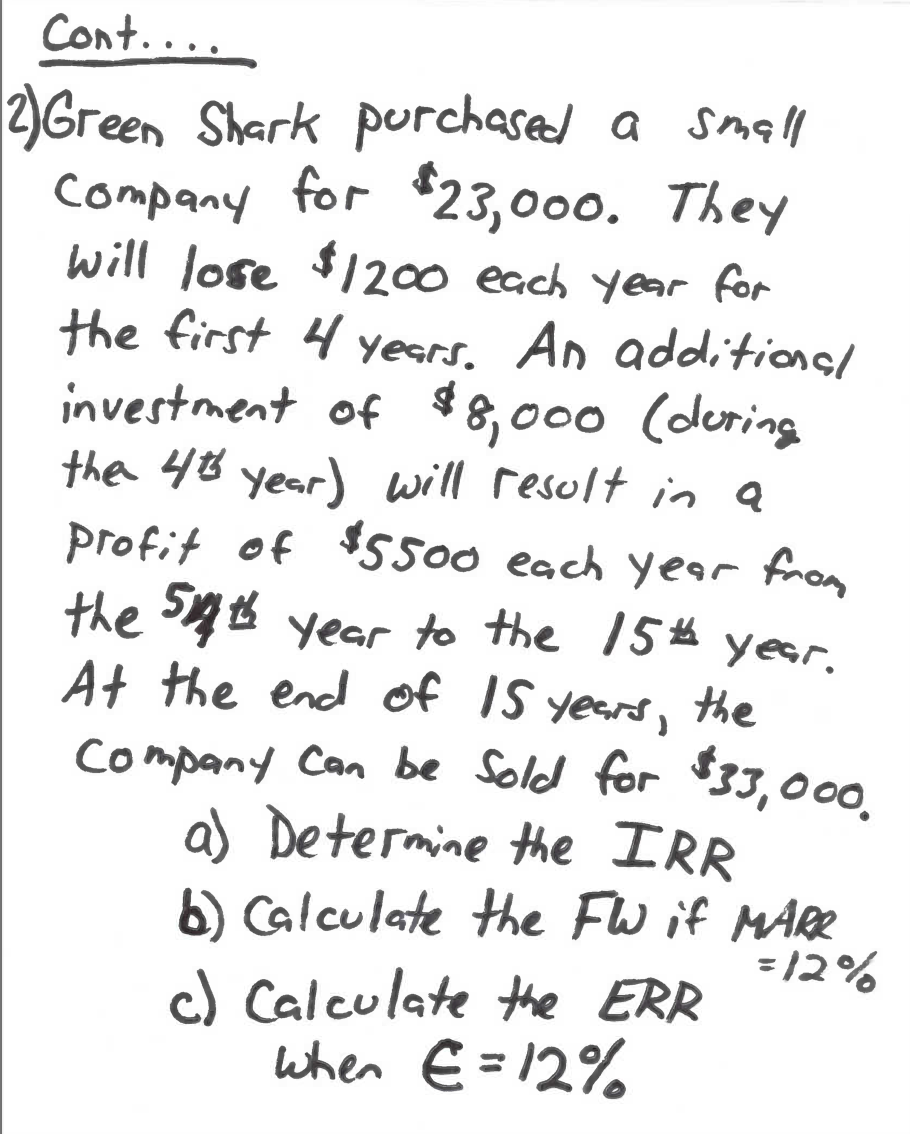 Cont....
2) Green Shark purchased a small
Company for $23,000. They
will lose $1200 each year for
the first 4 years. An additional
investment of $8,000 (during
the 4th year) will result in a
profit of $5500 each year from
the 5th year to the 15th year.
At the end of 15 years, the
Company can be sold for $33,000.
a) Determine the IRR
b) Calculate the FW if MARR
=12%
c) Calculate the ERR
when ∈ = 12%